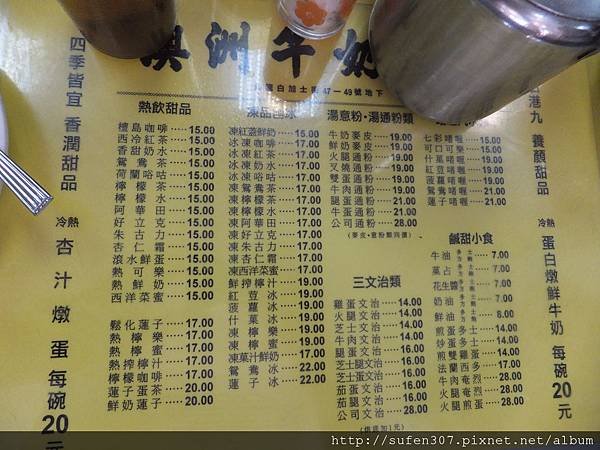 澳洲牛奶
白加士街47－49號地下
四季皆宜 香潤甜品
冷熱 杏汁燉蛋 每碗20元
熱飲甜品
檀島咖啡 ···· 15.00
西冷紅茶 ···· 15.00
香甜奶水 ···· 15.00
鴛鴦茶 ···· 15.00
荷蘭唂咕 ···· 15.00
檸檬茶 ···· 15.00
檸檬水 ···· 15.00
阿華田 ···· 15.00
好立克 ···· 15.00
朱古力 ···· 15.00
杏仁霜 ···· 15.00
滾水鮮蛋 ···· 15.00
熱可樂 ···· 15.00
熱鮮奶 ···· 15.00
西洋菜蜜 ···· 15.00
鬆化蓮子 ···· 17.00
熱檸樂 ···· 17.00
熱檸蜜 ···· 17.00
熱搾檸汁 ···· 17.00
檸檬咖啡 ···· 20.00
蓮子蛋茶 ···· 20.00
鮮奶蓮子 ···· 20.00
凍品
凍紅蓋鮮奶 ···· 15.00
冰凍咖啡 ···· 17.00
冰凍紅茶 ···· 17.00
冰凍奶水 ···· 17.00
冰凍唂咕 ···· 17.00
凍鴛鴦茶 ···· 17.00
凍檸檬茶 ···· 17.00
凍檸檬水 ···· 17.00
凍阿華田 ···· 17.00
凍好立克 ···· 17.00
凍朱古力 ···· 17.00
凍杏仁霜 ···· 17.00
凍西洋菜蜜 ···· 17.00
鮮搾檸汁 ···· 19.00
紅荳冰 ···· 19.00
菠蘿冰 ···· 19.00
什菓冰 ···· 19.00
凍檸樂 ···· 19.00
凍檸蜜 ···· 19.00
凍菓汁鮮奶 ···· 17.00
鴛鴦冰 ···· 22.00
蓮子冰 ···· 22.00
湯意粉·湯通粉類
牛奶麥皮 ···· 19.00
鮮奶麥皮 ···· 19.00
火腿通粉 ···· 19.00
叉燒通粉 ···· 19.00
雙蛋通粉 ···· 19.00
牛肉通粉 ···· 19.00
腿蛋通粉 ···· 21.00
牛蛋通粉 ···· 21.00
公司通粉 ···· 28.00
(麥皮·意粉類同價)
三文治類
雞蛋文治 ···· 14.00
火腿文治 ···· 14.00
芝士文治 ···· 14.00
牛肉文治 ···· 14.00
腿蛋文治 ···· 21.00
芝士腿文治 ···· 21.00
芝士蛋文治 ···· 21.00
茄蛋文治 ···· 21.00
茄腿文治 ···· 21.00
公司文治 ···· 28.00
(烘底加1元)
七彩啫喱
可口啫喱
紅荳啫喱 ···· 19.00
菠蘿啫喱 ···· 19.00
鴛鴦啫喱 ···· 21.00
蓮子啫喱 ···· 21.00
鹹甜小食
牛油 多士 方飽 ···· 7.00
菓占 多士 方飽 ···· 7.00
花生醬 多士 方飽 ···· 7.00
奶油 多士 方飽 ···· 7.00
鮮油 多士 方飽 ···· 8.00
煎蛋多士 ···· 14.00
炒蛋多士 ···· 14.00
煎雙雞蛋 ···· 14.00
法蘭西多士 ···· 22.00
牛肉奄烈 ···· 28.00
火腿奄烈 ···· 28.00
火腿煎蛋 ···· 28.00
港九 養顏甜品
冷熱 蛋白燉鮮牛奶 每碗20元
http://sufen307.pixnet.net/album